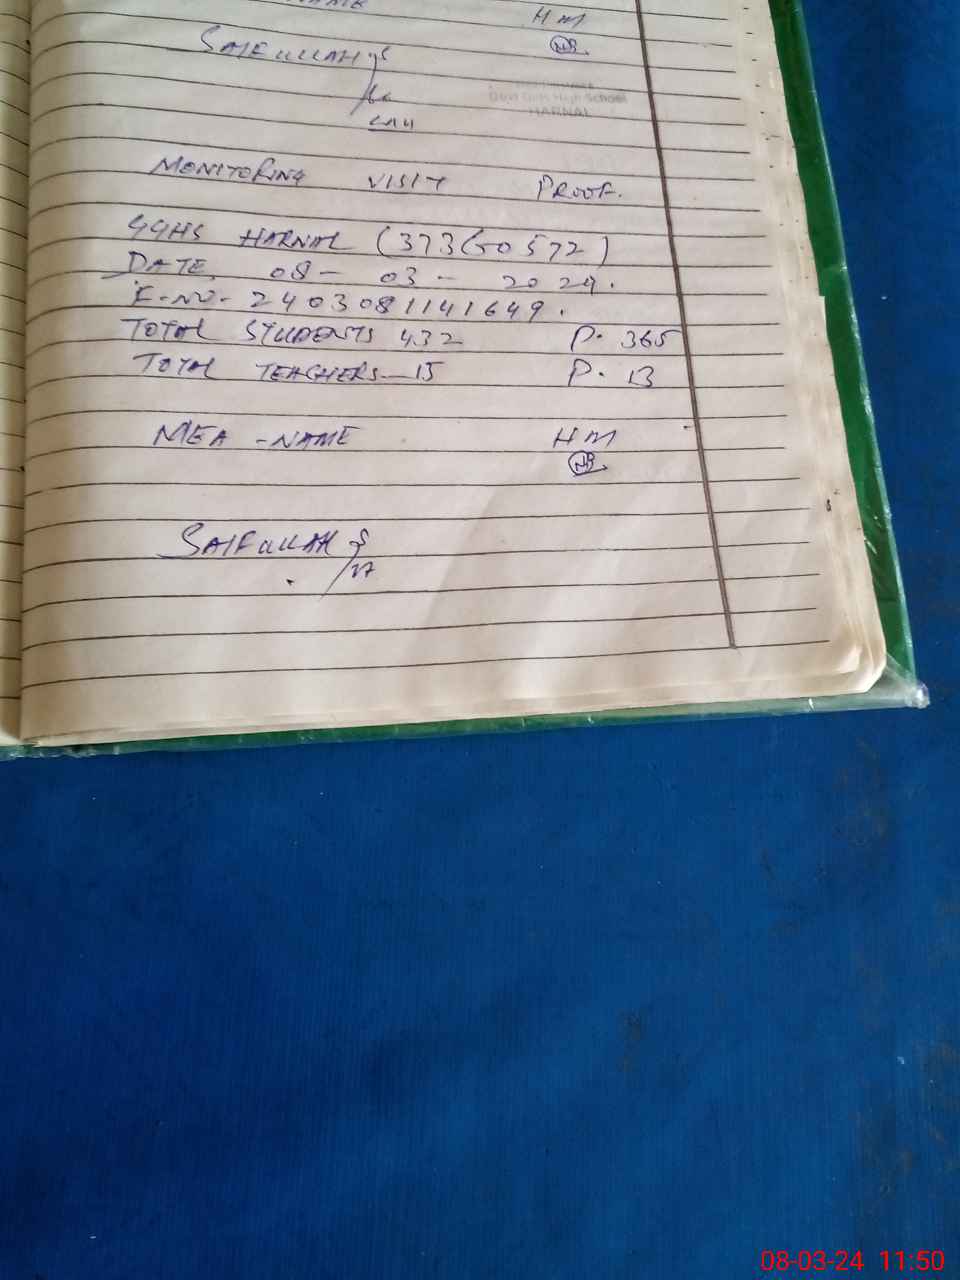 HM
NB
SAIFULLAH
Govt Girls High School
HARNAI
MONITORING VISIT PROOF.
GGHS HARNAI (37350572)
DATE 08 - 03 - 2024.
F-NO- 2403081141649.
TOTAL STUDENTS 432 P. 365
TOTAL TEACHERS - 15 P. 13
MEA - NAME HM
NB
SAIFULLAH
08-03-24 11:50